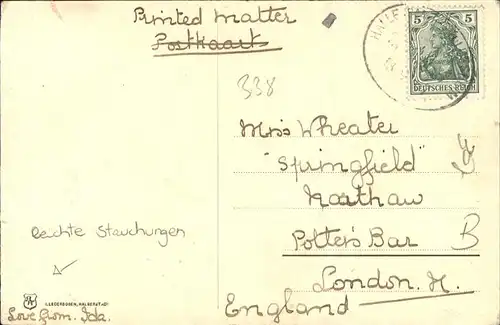 Printed matter
Postkaart
5 5
DEUTSCHES REICH
HALLE
338
Miss Wheater
"Springfield"
Northaw
Potter's Bar
London. N.
England
B
leichte Stauchungen
Love from Ida.